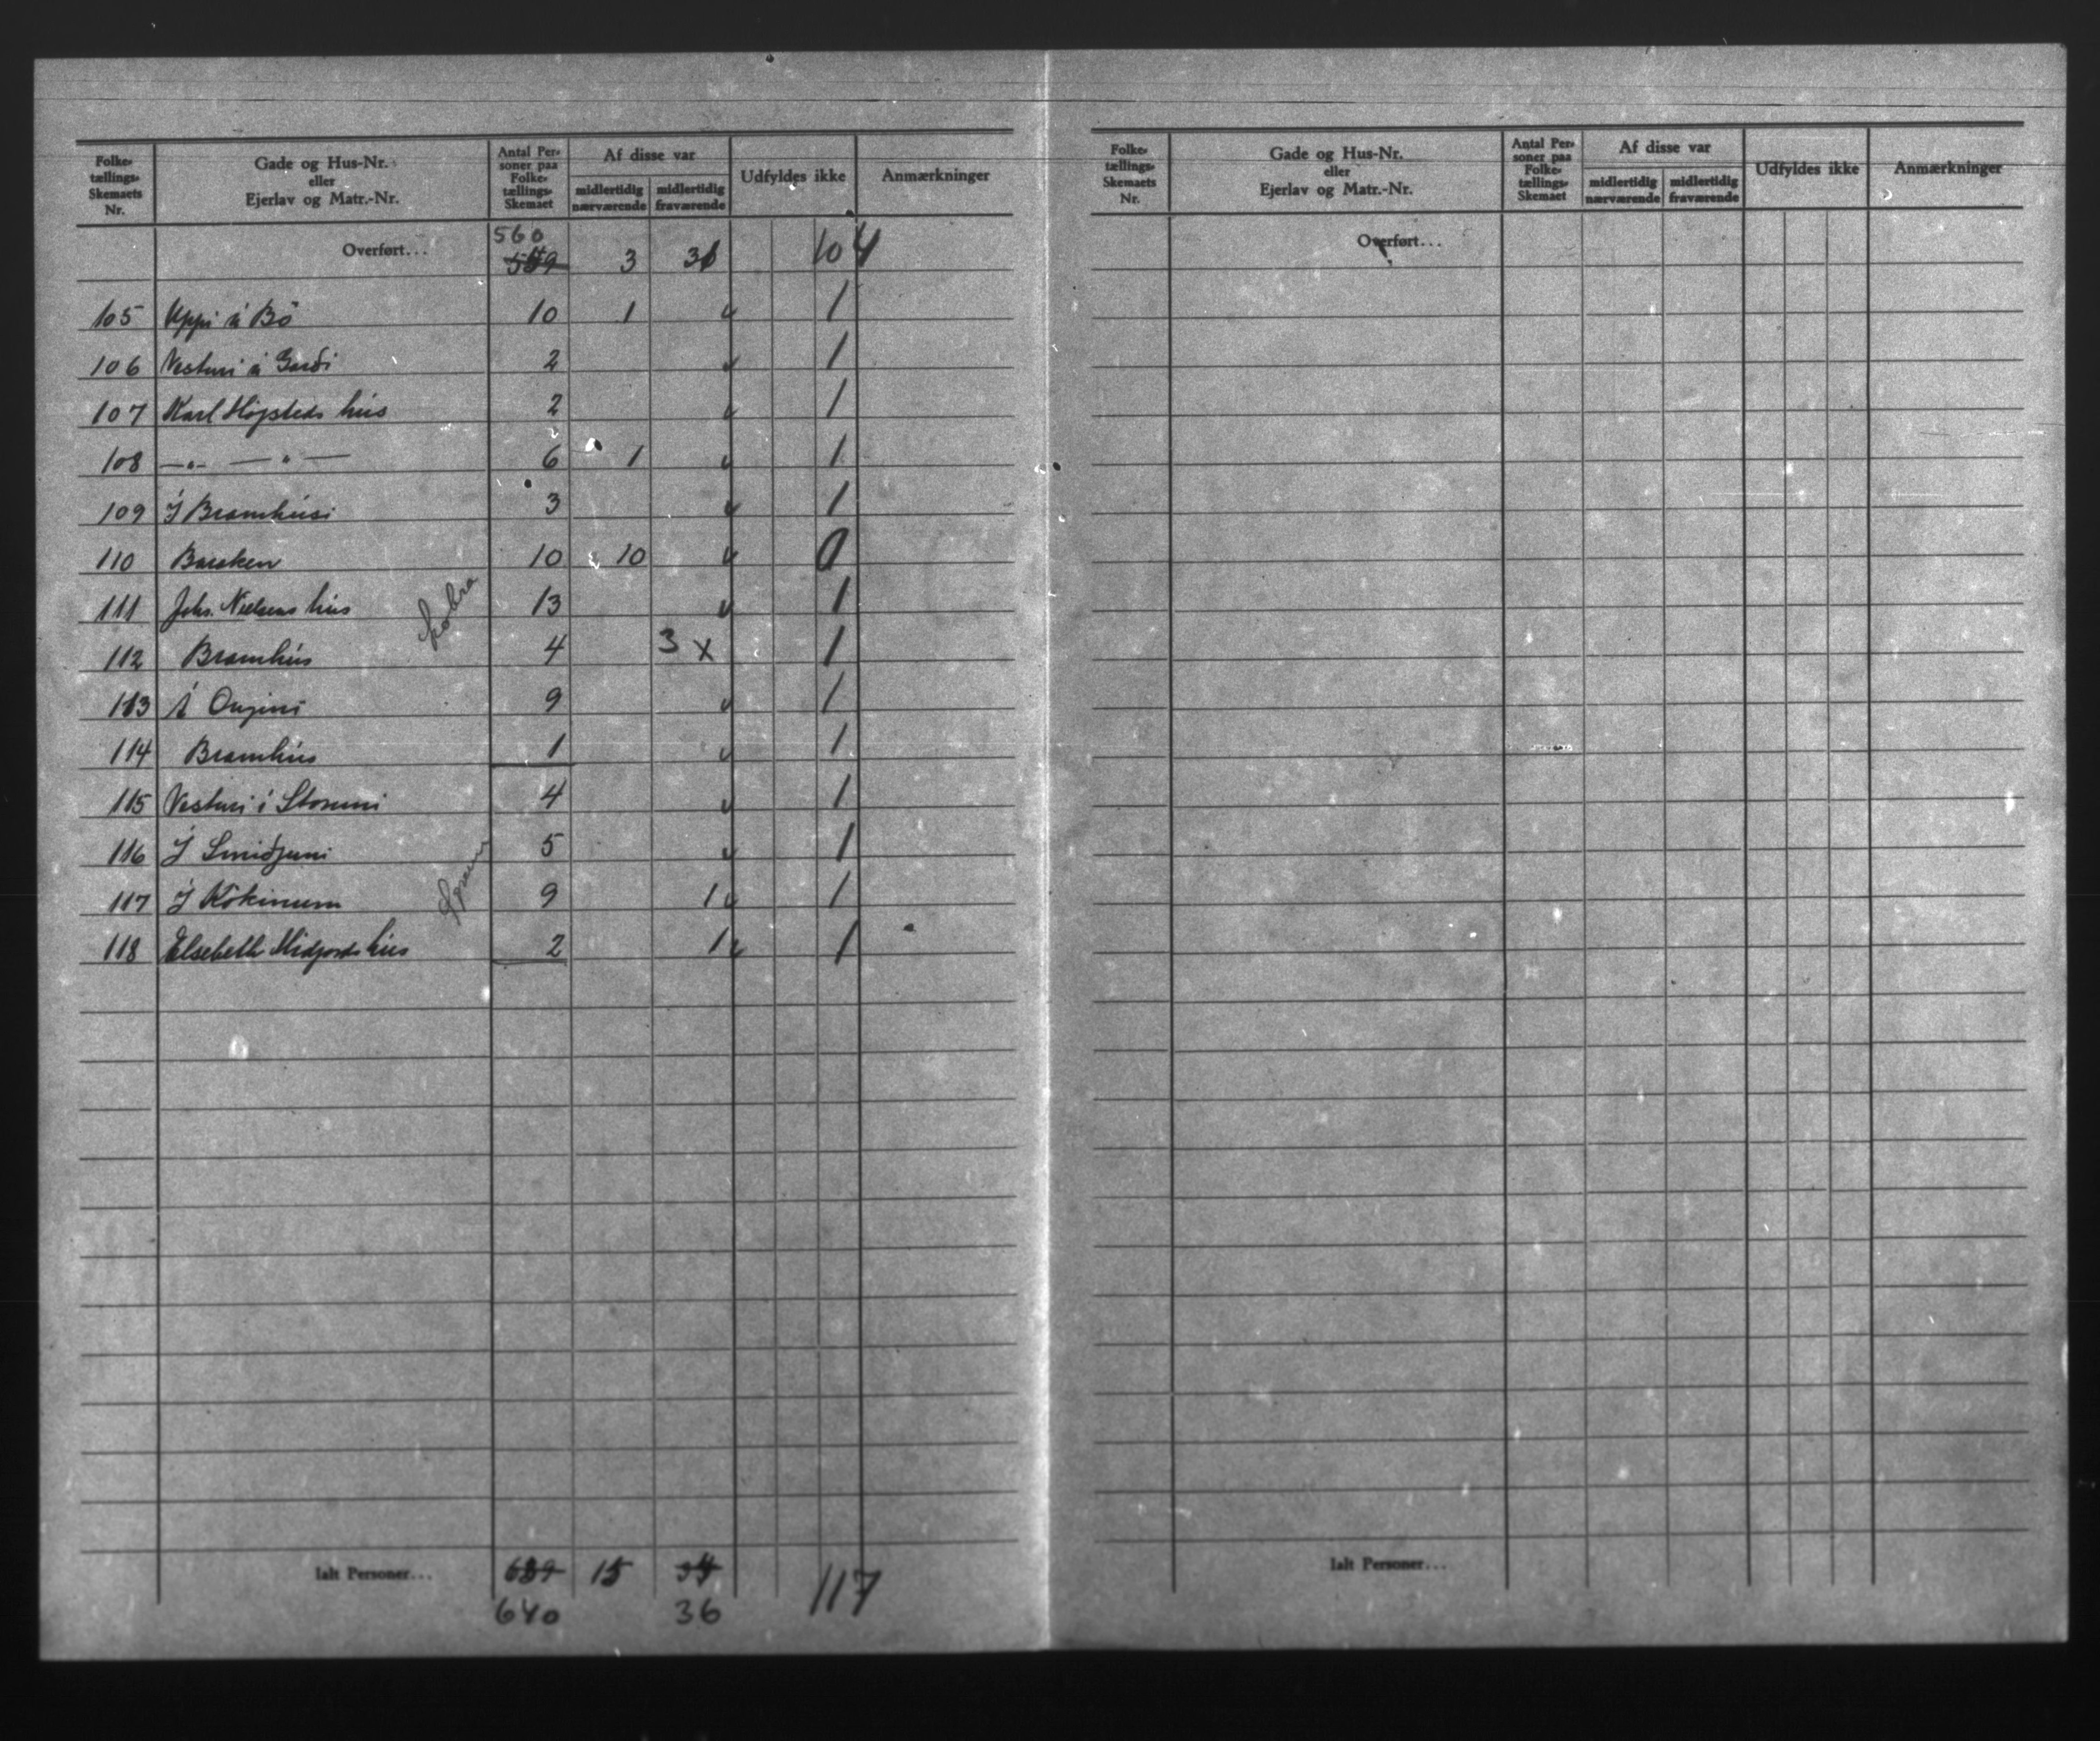 Folke- tællings- Skemaets Nr. | Gade og Hus-Nr. eller Ejerlav og Matr.-Nr. | Antal Per- soner paa Folke- tællings- Skemaet | Af disse var midlertidig nærværende | midlertidig fraværende | Udfyldes ikke | Anmærkninger
Overført... 560 3 104
105 Uppi á Bø 10 1 1
106 Vesturi á Garði 2 1
107 Karl Høgsteds hús 2 1
108 —„— — „ — 6 1 1
109 Í Bramhúsi 3 1
110 Baraken 10 10 0
111 Johs. Nielsens hús 13 1
112 Bramhús 4 3 x 1
113 Á 9 1
114 Bramhús 1 1
115 Vesturi í 4 1
116 Í Smiðjuni 5 1
117 Í 9 1 1
118 Elsebeth Midjords hús 2 1 1
Ialt Personer... 639 15 117
640 36
Folke- tællings- Skemaets Nr. | Gade og Hus-Nr. eller Ejerlav og Matr.-Nr. | Antal Per- soner paa Folke- tællings- Skemaet | Af disse var midlertidig nærværende | midlertidig fraværende | Udfyldes ikke | Anmærkninger
Overført...
Ialt Personer...